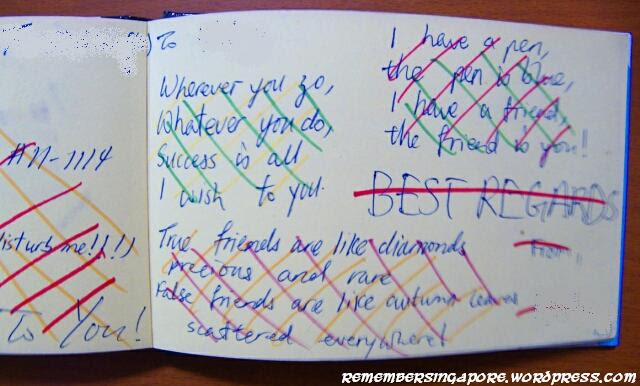 #11-1114
disturb me!!!)
To You!
To
Wherever you go,
Whatever you do,
Success is all
I wish to you.
I have a pen,
the pen is blue,
I have a friend,
the friend is you!
BEST REGARDS
From,
True friends are like diamonds
precious and rare
False friends are like autumn leaves
scattered everywhere!
REMEMBERSINGAPORE.WORDPRESS.COM